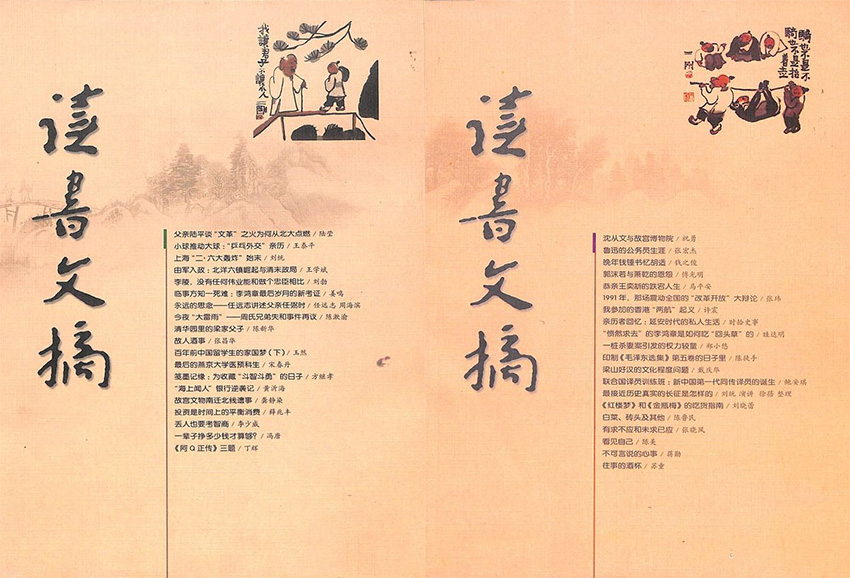 读书文摘
我让君子不让人
父亲陆平谈“文革”之火为何从北大点燃 / 陆莹
小球推动大球:“乒乓外交”亲历 / 王泰平
上海“二·六大轰炸”始末 / 刘统
由军入政:北洋六镇崛起与清末政局 / 王学斌
李陵,没有任何伟业能和做个忠臣相比 / 刘勃
临事方知一死难:李鸿章最后岁月的新考证 / 姜鸣
永远的思念——任远志讲述父亲任弼时 / 任远志 周海滨
今夜“大雷雨”——周氏兄弟失和事件再议 / 陈漱渝
清华园里的梁家父子 / 陈新华
故人酒事 / 张昌华
百年前中国留学生的家国梦(下) / 王然
最后的燕京大学医预科生 / 宋春丹
笺墨记缘:为收藏“斗智斗勇”的日子 / 方继孝
“海上闻人”银行逆袭记 / 黄沂海
故宫文物南迁北线遗事 / 龚静染
投资是时间上的平衡消费 / 薛兆丰
丢人也要考智商 / 李少威
一辈子挣多少钱才算够? / 冯唐
《阿Q正传》三题 / 丁辉
读书文摘
骑也不是不骑也不是抬着走
沈从文与故宫博物院 / 祝勇
鲁迅的公务员生涯 / 张宏杰
晚年钱锺书忆胡适 / 钱之俊
郭沫若与萧乾的恩怨 / 傅光明
恭亲王奕訢的跌宕人生 / 马平安
1991年,那场震动全国的“改革开放”大辩论 / 张炜
我参加的香港“两航”起义 / 许震
亲历者回忆:延安时代的私人生活 / 时拾史事
“愤然求去”的李鸿章是如何吃“回头草”的 / 雒达明
一桩杀妻案引发的权力较量 / 郑小悠
印制《毛泽东选集》第五卷的日子里 / 陈徒手
梁山好汉的文化程度问题 / 戴庆华
联合国译员训练班:新中国第一代同传译员的诞生 / 鲍安琪
最接近历史真实的长征是怎样的 / 刘统 演讲 徐蓓 整理
《红楼梦》和《金瓶梅》的吃货指南 / 刘晓蕾
白菜、砖头及其他 / 陈鲁民
有求不应和未求已应 / 张晓风
看见自己 / 陈美
不可言说的心事 / 蒋勋
往事的酒杯 / 苏童